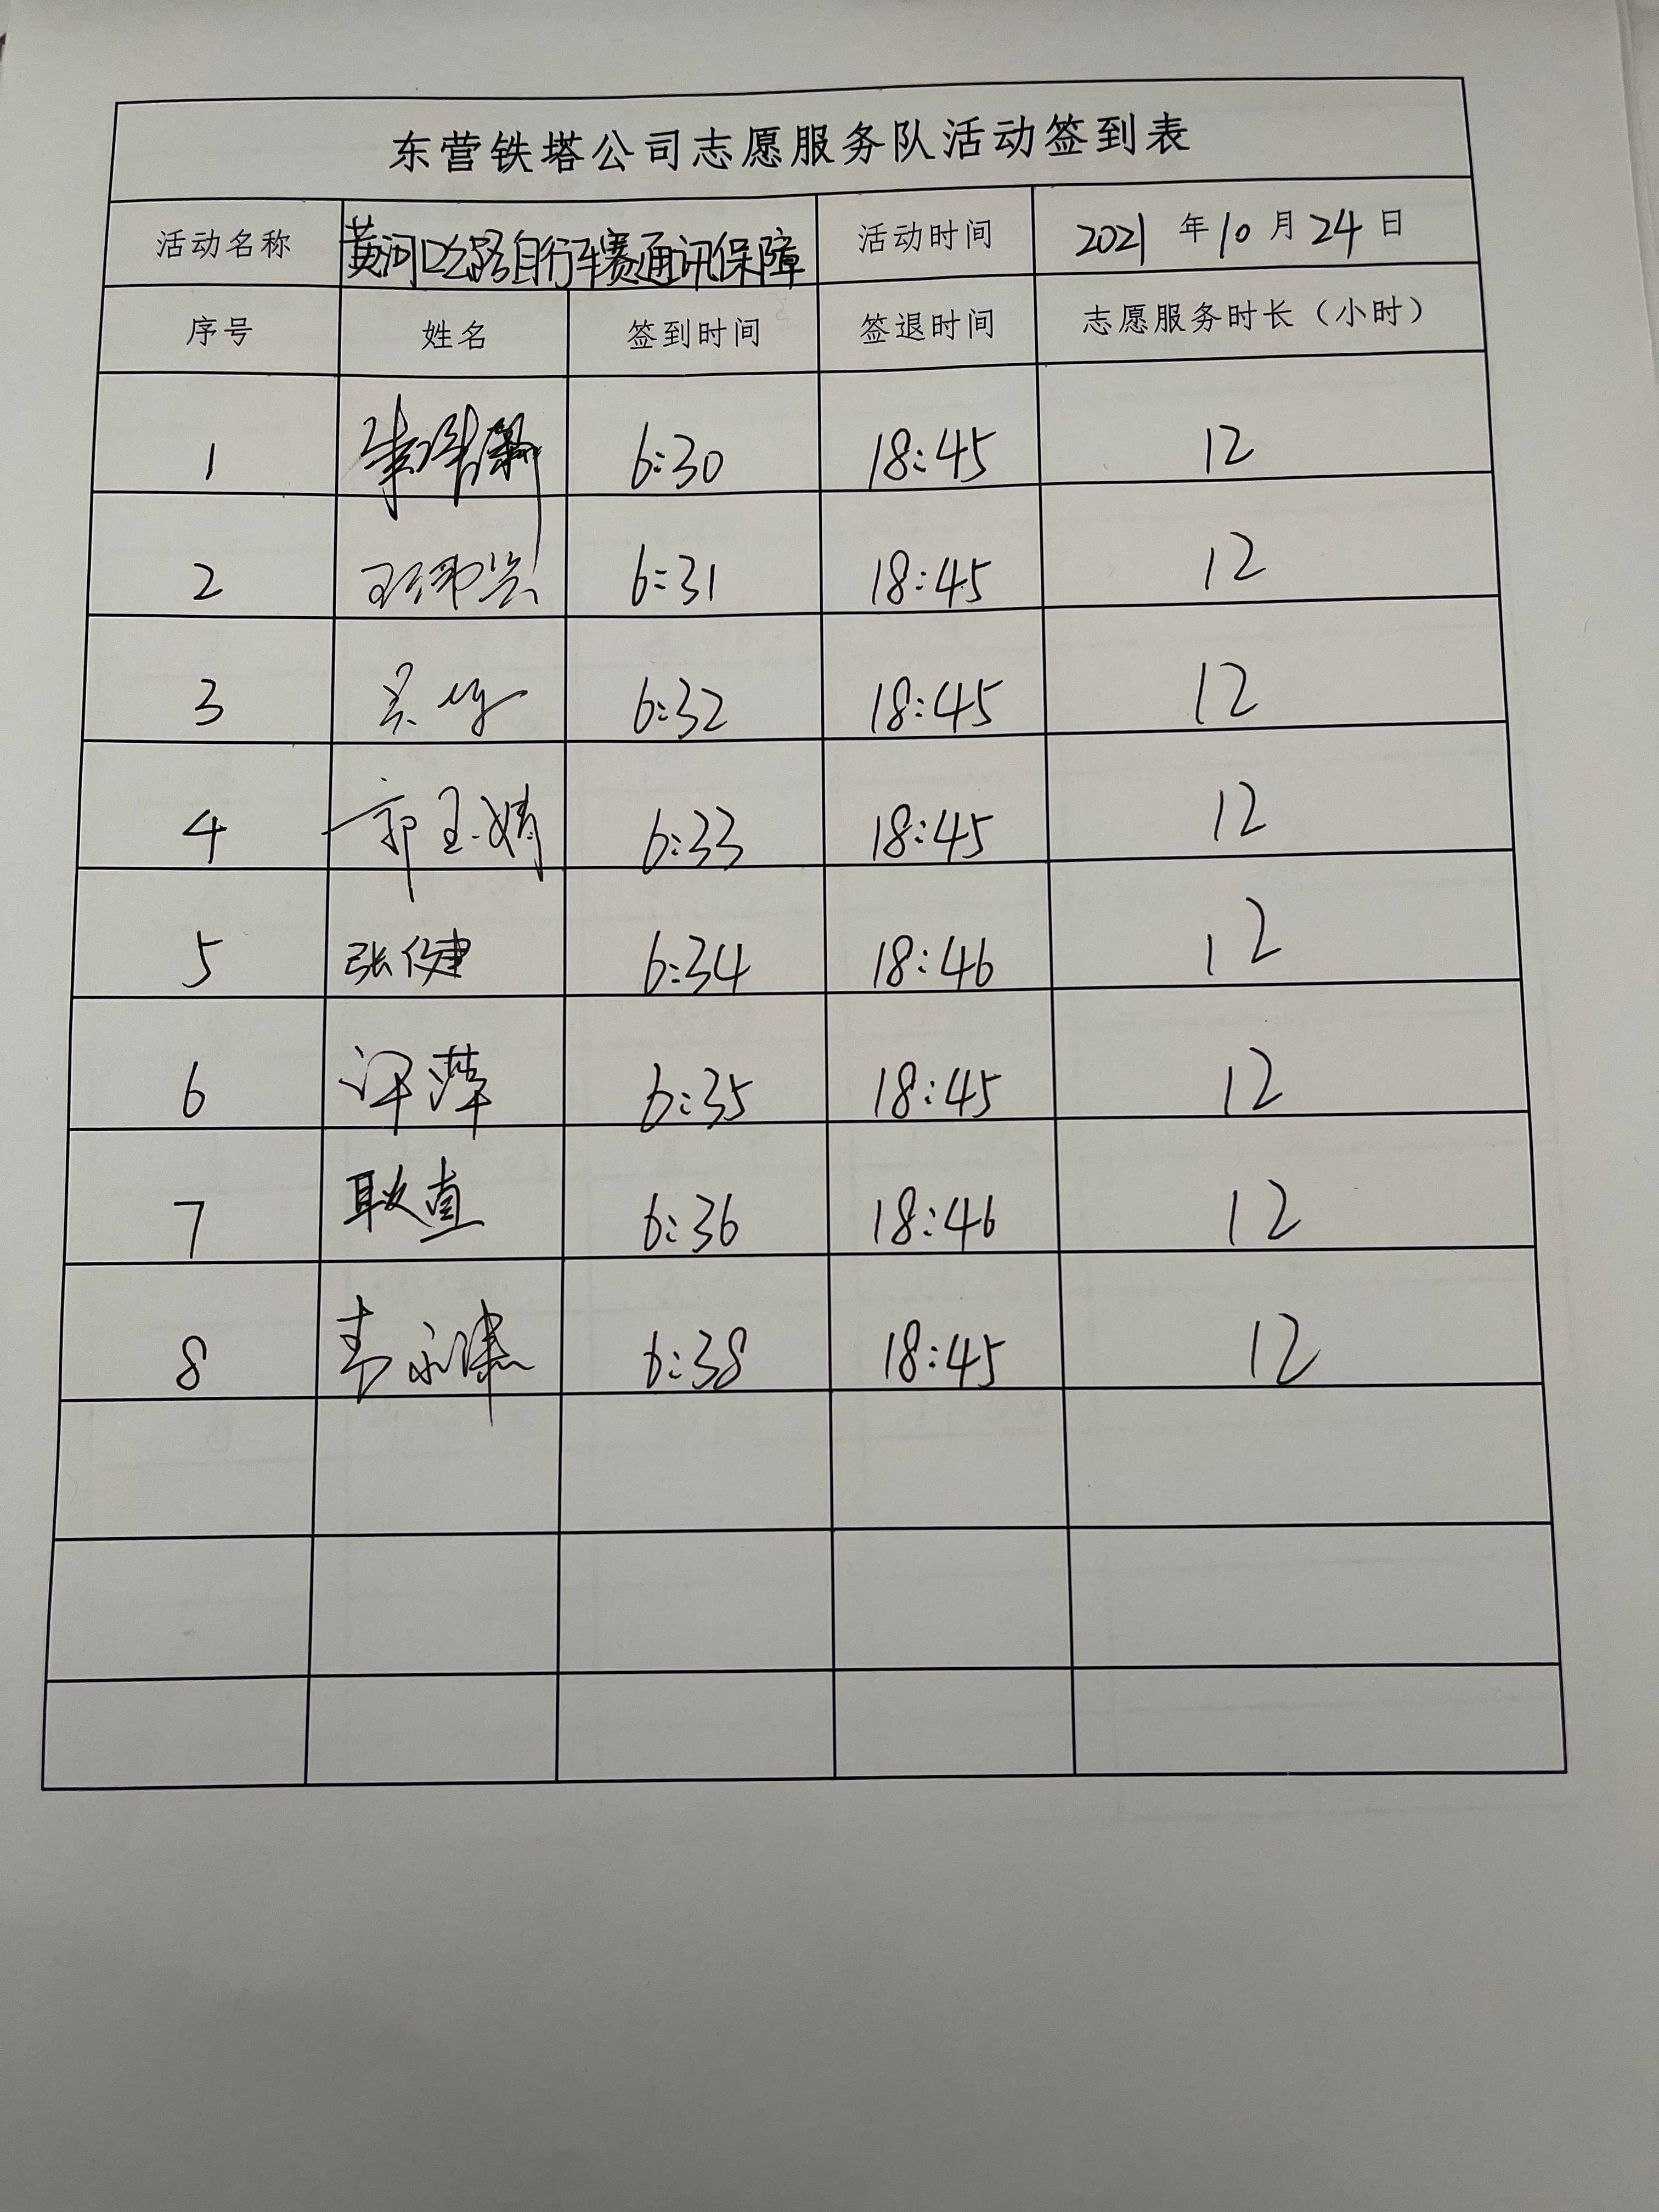 东营铁塔公司志愿服务队活动签到表
活动名称 黄河口公路自行车赛通讯保障 活动时间 2021 年 10 月 24 日
序号 姓名 签到时间 签退时间 志愿服务时长（小时）
1 6:30 18:45 12
2 6:31 18:45 12
3 6:32 18:45 12
4 郭玉婧 6:33 18:45 12
5 张健 6:34 18:46 12
6 许萍 6:35 18:45 12
7 耿直 6:36 18:46 12
8 6:38 18:45 12